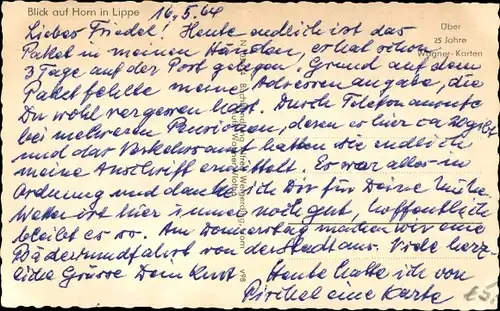 Blick auf Horn in Lippe
16.5.64
Über
25 Jahre
Wagner-Karten
Lieber Friedel! Heute endlich ist das
Paket in meinen Händen, es hat schon
3 Tage auf der Post gelegen. Grund auf dem
Paket fehlte meine Adressenangabe, die
Du wohl vergessen hast. Durch Telefonanrufe
bei mehreren Pensionen, deren es hier ca 20 gibt
und das Verkehrsamt hatten sie endlich
meine Anschrift ermittelt. Es war alles in
Ordnung und danke ich Dir für Deine Mühe
Wetter ist hier immer noch gut, hoffentlich
bleibt es so. Am Donnerstag machen wir eine
Bäderrundfahrt von der Stadt aus. Viele herz-
liche Grüsse Dein Kurt
Heute hatte ich von
eine Karte
V98